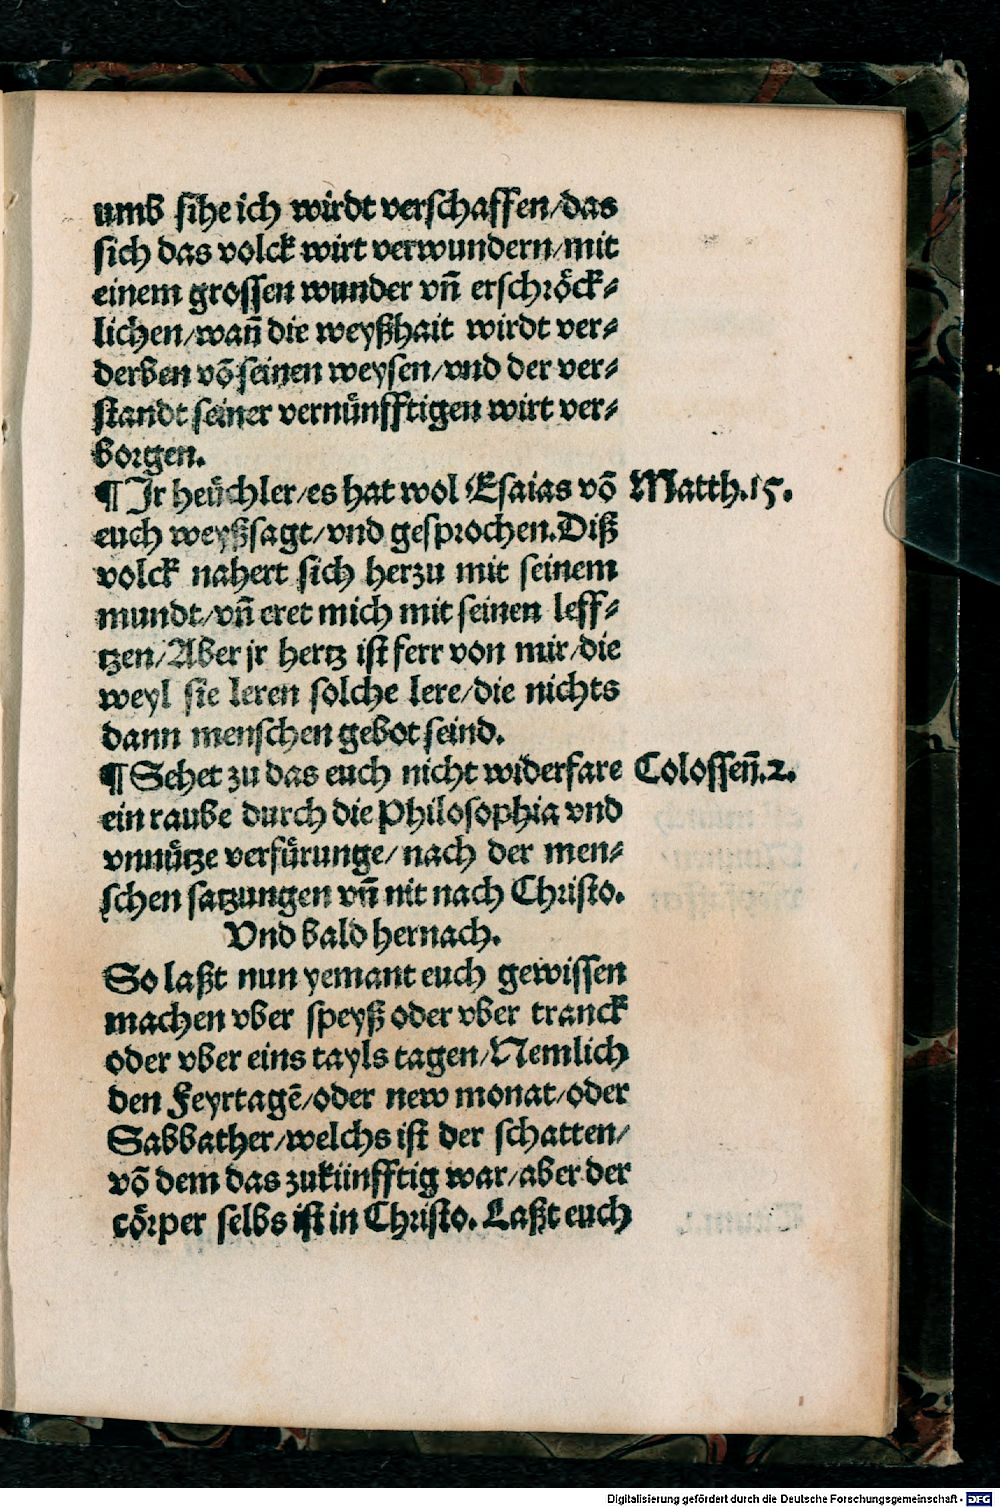 umb sihe ich wirdt verschaffen/das
sich das volck wirt verwundern/mit
einem grossen wunder vñ erschröck⸗
lichen/wañ die weyßhait wirdt ver⸗
derben võ seinen weysen/vnd der ver⸗
standt seiner vernünfftigen wirt ver⸗
borgen.
¶ Jr heüchler/es hat wol Esaias võ Matth.15.
euch weyßsagt/vnd gesprochen.Diß
volck nahert sich herzu mit seinem
mundt/vñ eret mich mit seinen leff⸗
tzen/Aber jr hertz ist ferr von mir/die
weyl sie leren solche lere/die nichts
dann menschen gebot seind.
¶ Sehet zu das euch nicht widerfare Colosseñ.2.
ein raube durch die Philosophia vnd
vnnütze verfürunge/nach der men⸗
schen satzungen vñ nit nach Christo.
Vnd bald hernach.
So laßt nun yemant euch gewissen
machen vber speyß oder vber tranck
oder vber eins tayls tagen/Nemlich
den Feyrtagẽ/oder new monat/oder
Sabbather/welchs ist der schatten/
võ dem das zukünfftig war/aber der
cörper selbs ist in Christo. Laßt euch
Digitalisierung gefördert durch die Deutsche Forschungsgemeinschaft - DFG